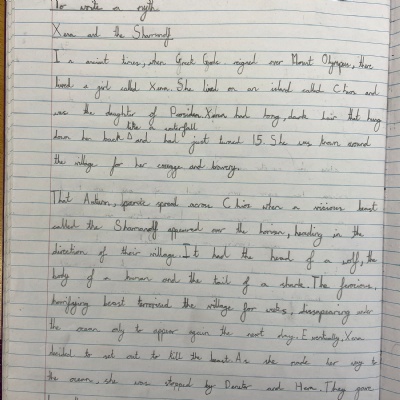 To write a myth
Xena and the Sharamanoff
In ancient times, when Greek Gods reigned over Mount Olympus, there
lived a girl called Xena. She lived on an island called Chios and
was the daughter of Poseidon. Xena had long, dark hair that hung
like a waterfall
down her back and had just turned 15. She was known around
the village for her courage and bravery.
That Autumn, panic spread across Chios when a vicious beast
called the Sharamanoff appeared over the horizon, heading in the
direction of their village. It had the head of a wolf, the
body of a human and the tail of a shark. The ferocious,
horrifying beast terrorised the village for weeks, disappearing under
the ocean only to appear again the next day. Eventually, Xena
decided to set out to kill the beast. As she made her way to
the ocean, she was stopped by Demeter and Hera. They gave